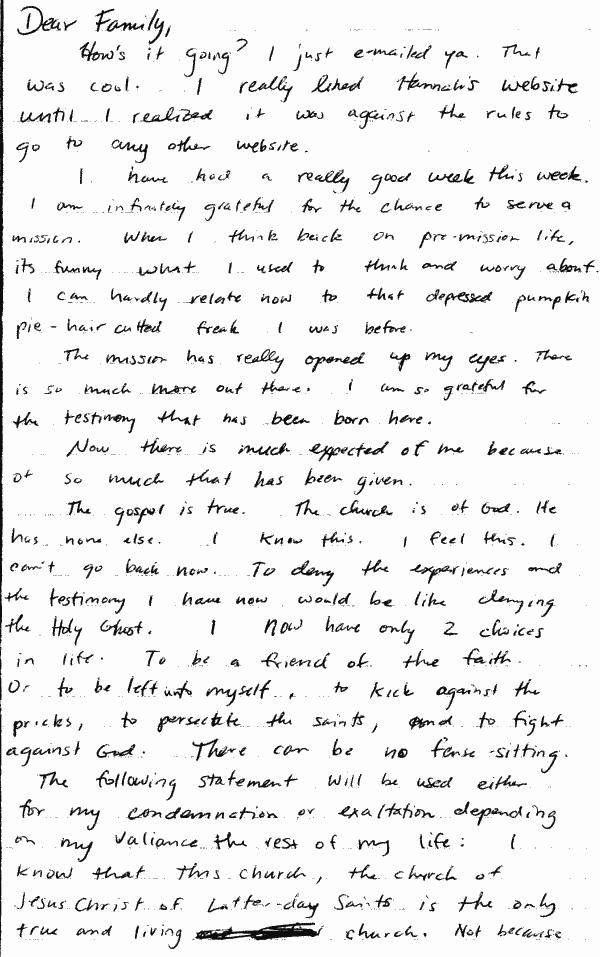 Dear Family,
How's it going? I just e-mailed ya. That
was cool. I really liked Hannah's website
until I realized it was against the rules to
go to any other website.
I have had a really good week this week.
I am infinitely grateful for the chance to serve a
mission. When I think back on pre-mission life,
its funny what I used to think and worry about.
I can hardly relate now to that depressed pumpkin
pie-hair cutted freak I was before.
The mission has really opened up my eyes. There
is so much more out there. I am so grateful for
the testimony that has been born here.
Now there is much expected of me because
of so much that has been given.
The gospel is true. The church is of God. He
has none else. I know this. I feel this. I
can't go back now. To deny the experiences and
the testimony I have now would be like denying
the Holy Ghost. I now have only 2 choices
in life. To be a friend of the faith.
Or to be left unto myself, to kick against the
pricks, to persecute the saints, and to fight
against God. There can be no fense-sitting.
The following statement will be used either
for my condemnation or exaltation depending
on my valiance the rest of my life: I
know that this church, the church of
Jesus Christ of Latter-day Saints is the only
true and living church. Not because